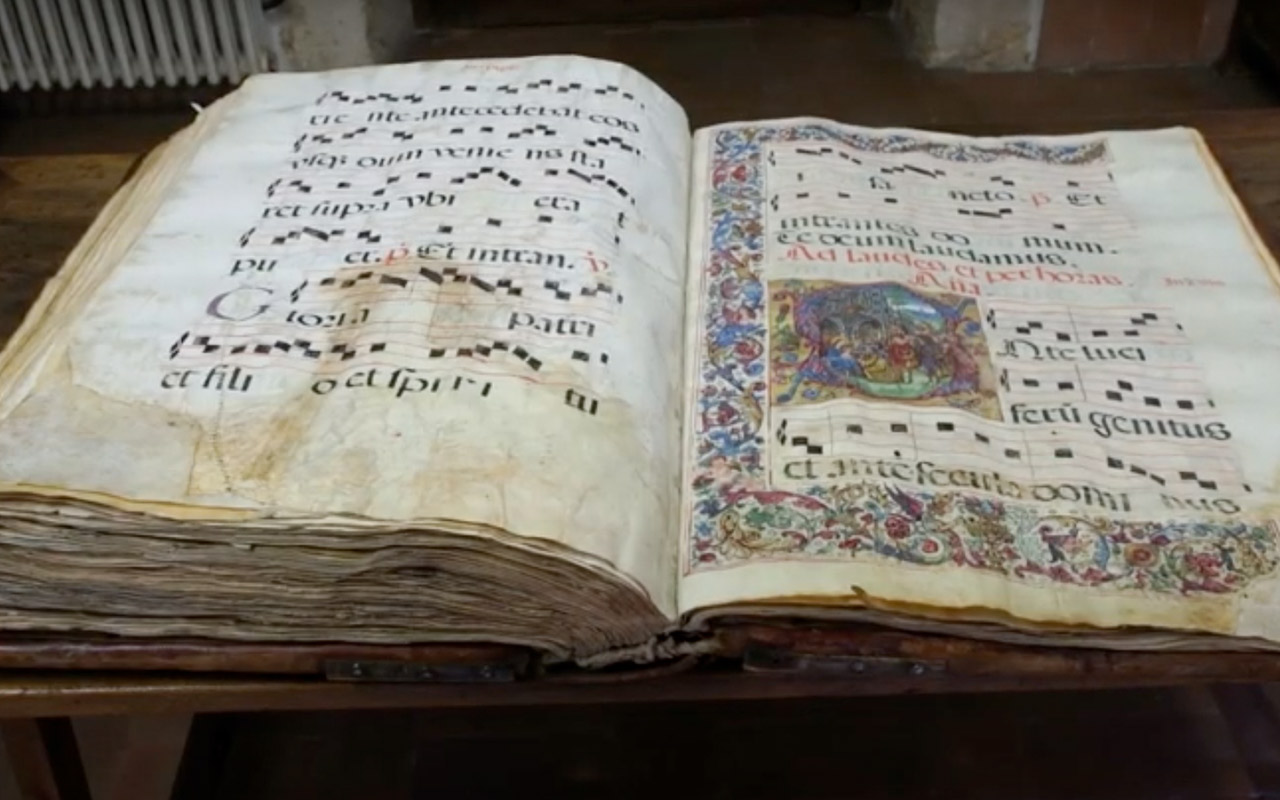 rie nte antecedebat eos
vsq; dum venie ns sta
ret supra vbi era t
pu er. p. Et intran. v
Gloria patri
et fili o et spiri tui
sa ncto. p. Et
intrantes do mum.
Te deum laudamus.
Ad laudes et per horas.
Aña
Nte luci
ferū genitus
et ante secula domi nus